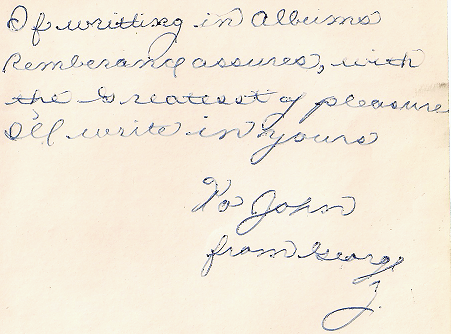 If writing in Albums
Remberance assures, with
the Greatest of pleasure
I'll write in yours
To John
from George
J.